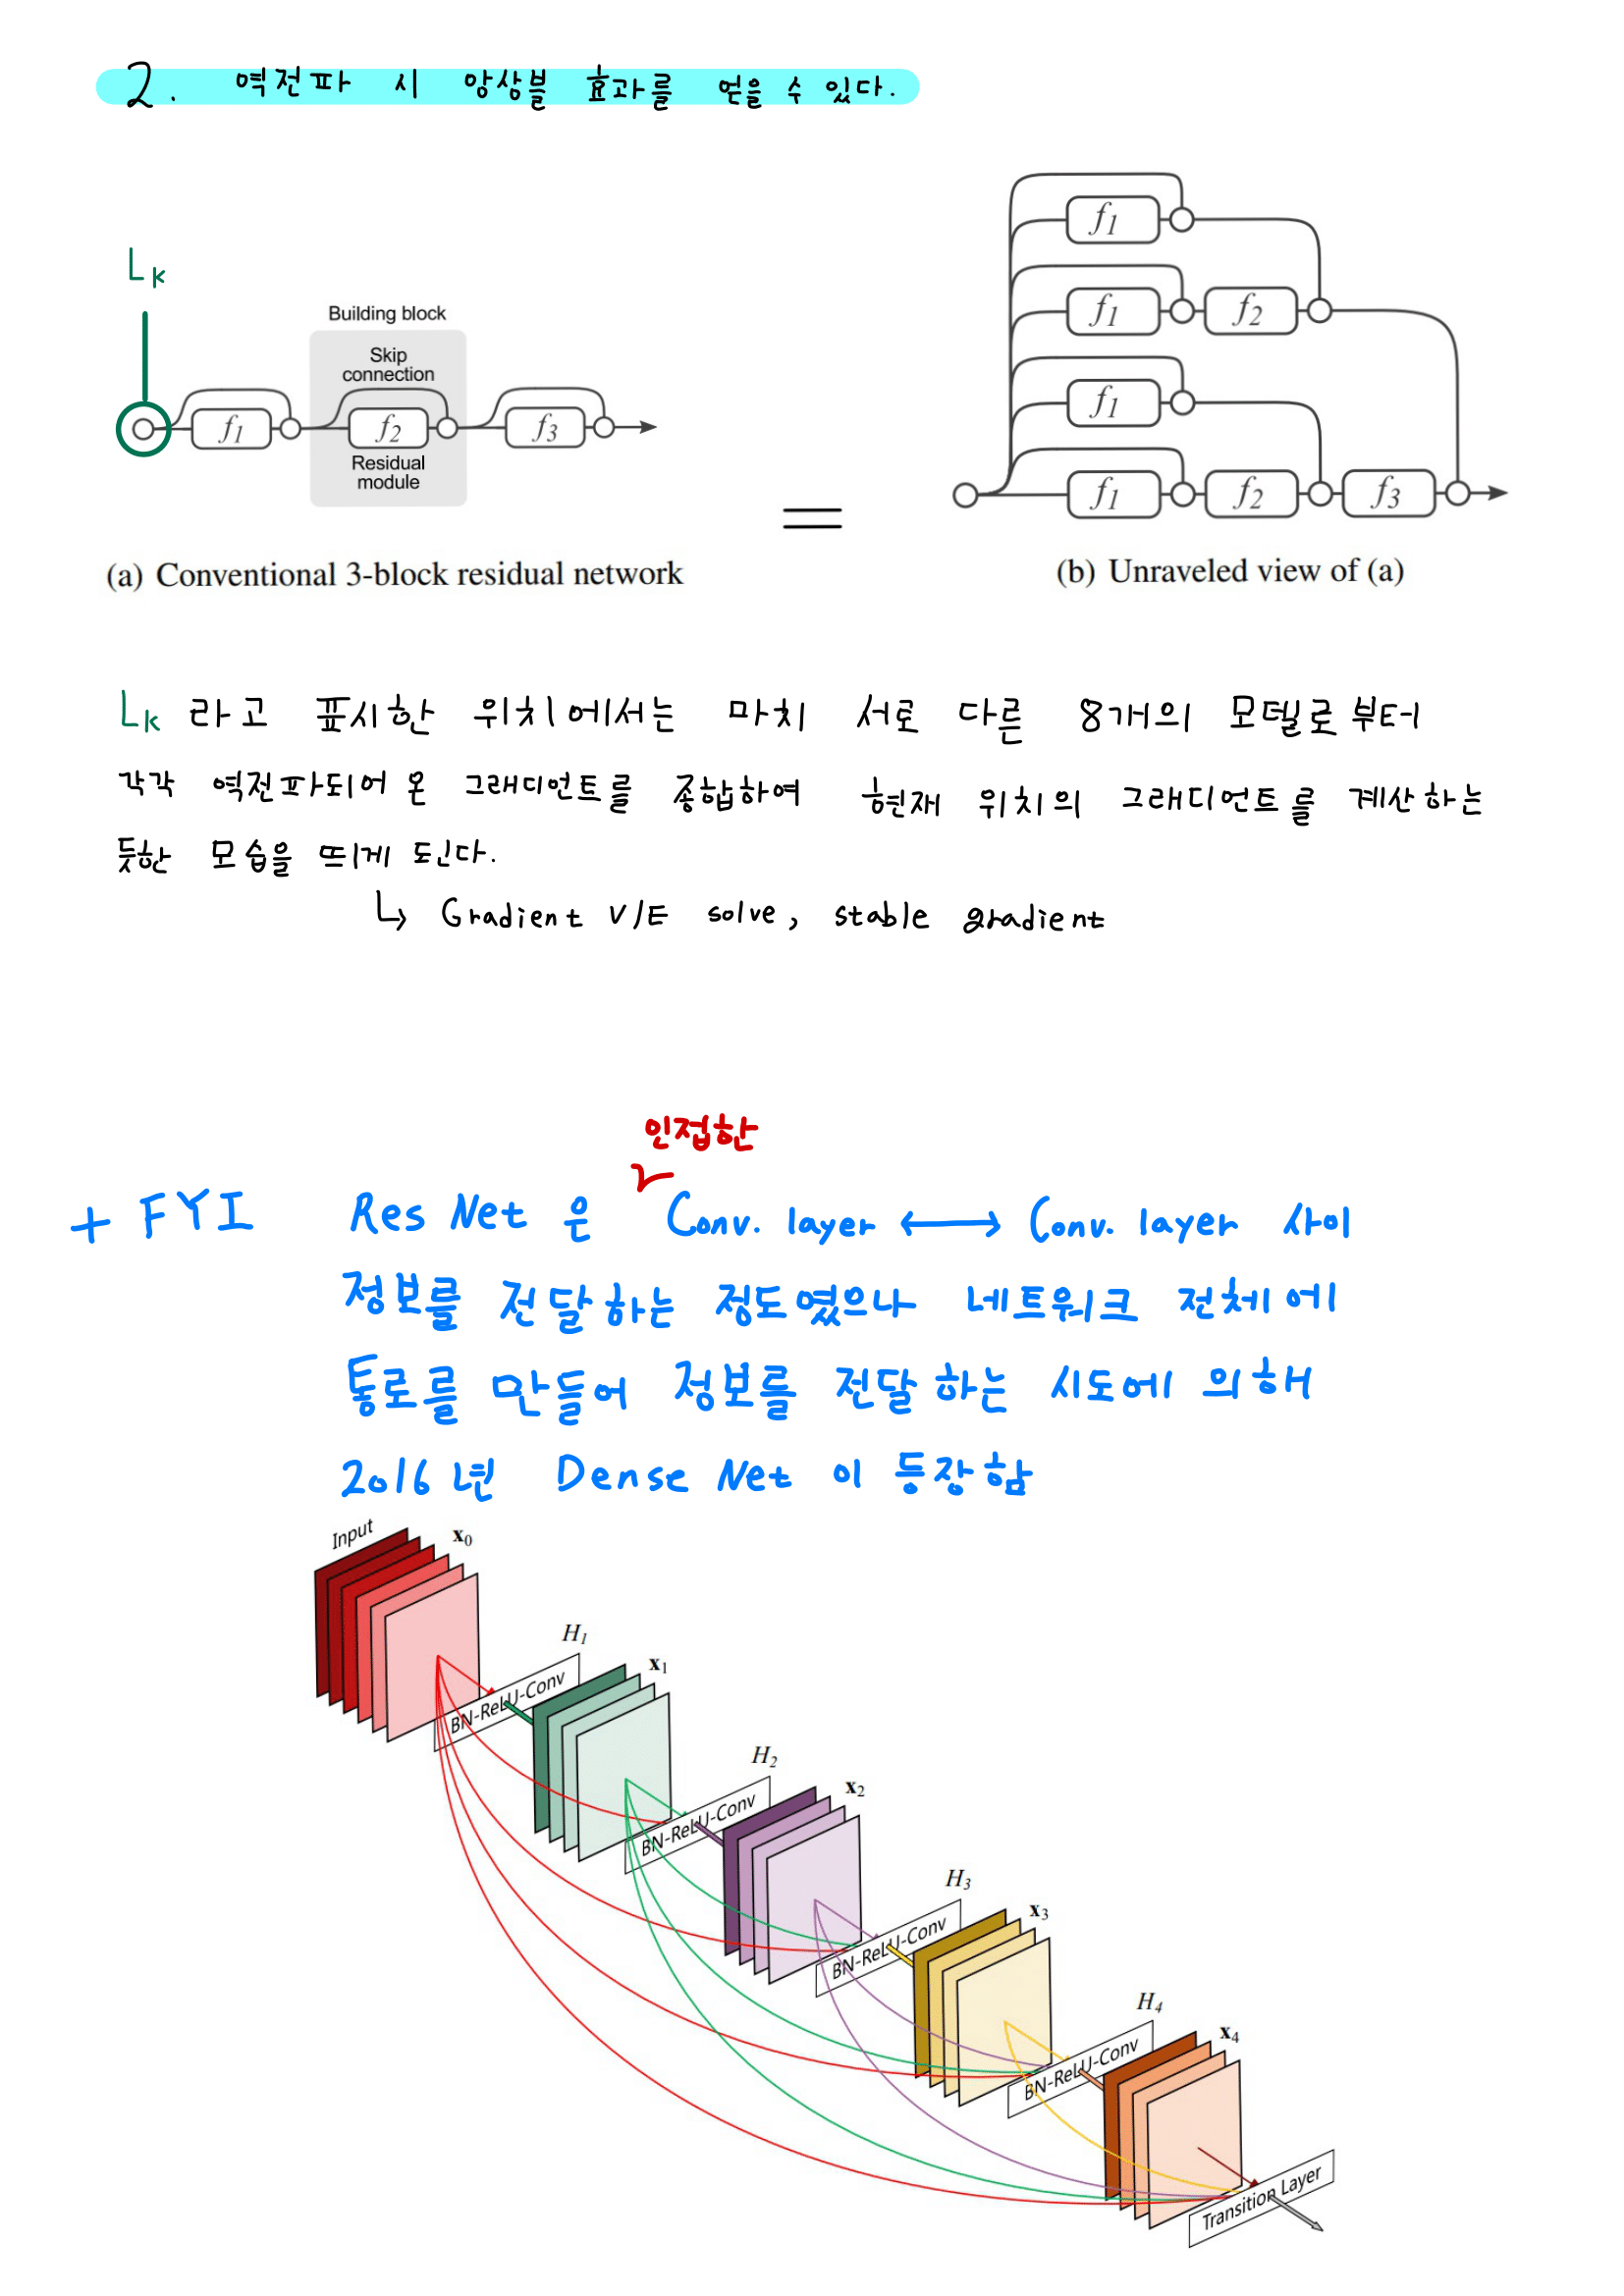 2. 역전파 시 앙상블 효과를 얻을 수 있다.
Lk
Building block
Skip
connection
f1
f2
f3
Residual
module
(a) Conventional 3-block residual network
=
f1
f1
f2
f1
f1
f2
f3
(b) Unraveled view of (a)
Lk 라고 표시한 위치에서는 마치 서로 다른 8개의 모델로부터
각각 역전파되어 온 그래디언트를 종합하여 현재 위치의 그래디언트를 계산하는
듯한 모습을 띄게 된다.
↳ Gradient V/E solve, stable gradient
인접한
+ FYI ResNet 은 Conv. layer ⟷ Conv. layer 사이
정보를 전달하는 정도였으나 네트워크 전체에
통로를 만들어 정보를 전달하는 시도에 의해
2016년 DenseNet 이 등장함
Input
x0
H1
BN-ReLU-Conv
x1
H2
BN-ReLU-Conv
x2
H3
BN-ReLU-Conv
x3
H4
BN-ReLU-Conv
x4
Transition Layer